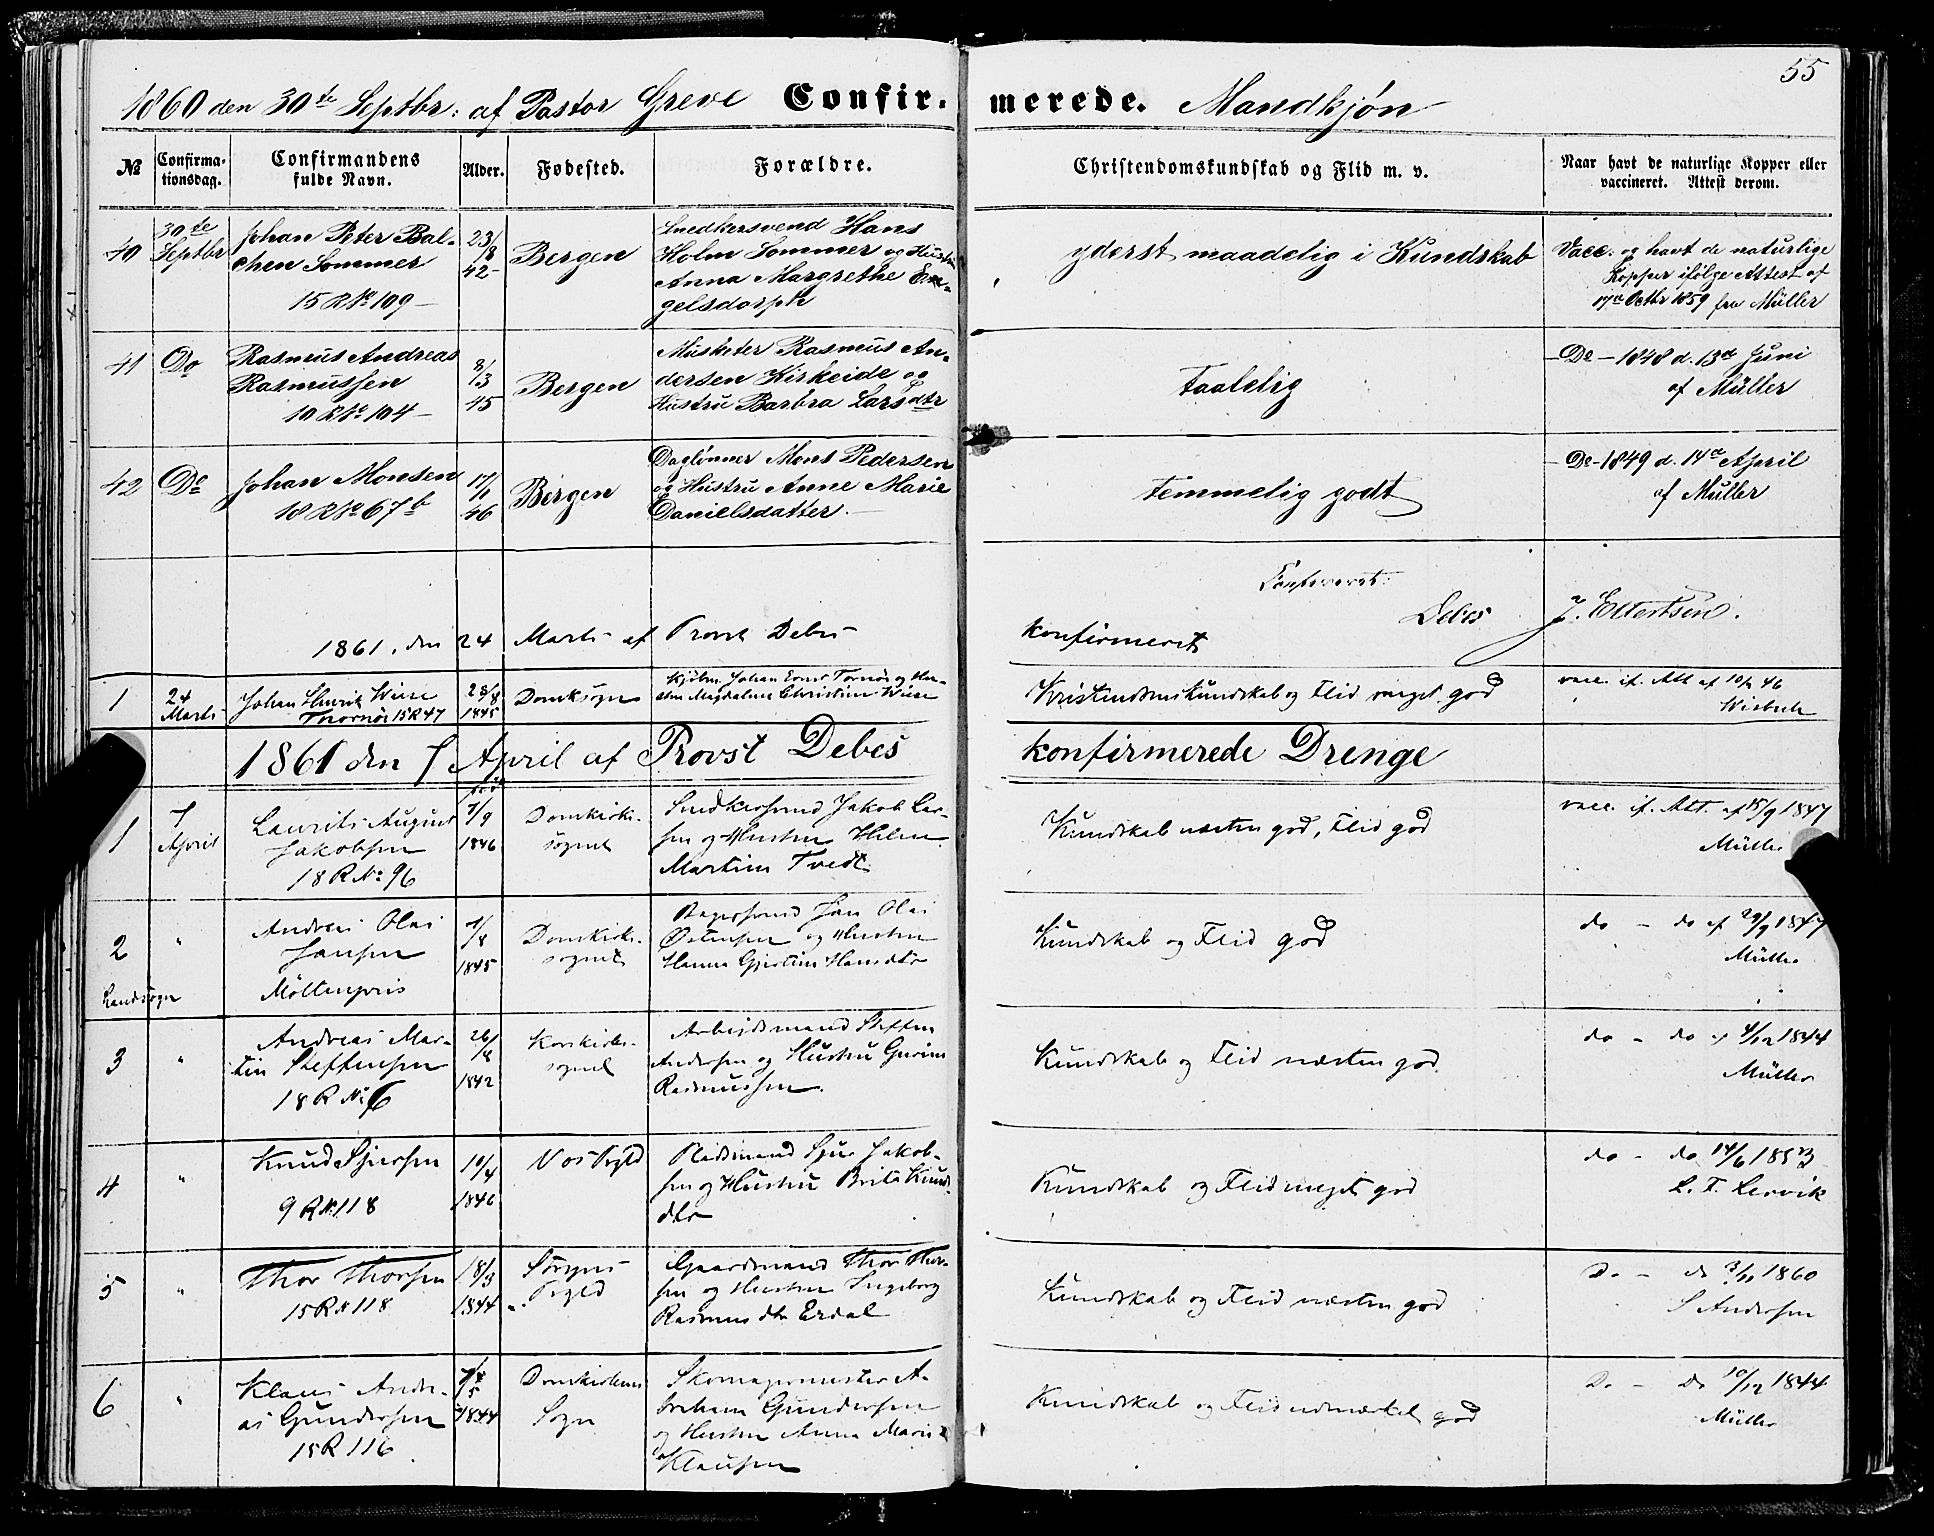 55
1860 den 30te Septbr: af Pastor Greve Confirmerede. Mandkjøn
№ Confirmationsdag. Confirmandens fulde Navn. Alder. Fødested. Forældre. Christendomskundskab og Flid m. v. Naar havt de naturlige Kopper eller vaccineret. Attest derom.
40 30te Septbr Johan Peter Bal-
chen Sommer
15 R № 109
23/8 42
Bergen
Snedkersvend Hans
Holm Sommer og Hustru
Anna Margrethe En-
gelsdorph
yderst maadelig i Kundskab
Vacc. og havt de naturlige
Kopper ifølge Attest af
17de Octbr 1859 fra Müller
41 Do Rasmus Andreas
Rasmussen
10 R № 104
8/3 45
Bergen
Musketer Rasmus An-
dersen Kirkeide og
Hustru Barbra Larsdtr
Taalelig
Do 1848 d. 13de Juni
af Müller
42 Do Johan Monsen
18 R № 67b
17/1 46
Bergen
Daglønner Mons Pedersen
og Hustru Anne Marie
Danielsdatter.
temmelig godt
Do 1849 d. 14de April
af Müller
Debes J. Ellertsen.
1861, den 24 Marts af Provst Debes konfirmeret
1 24 Marts Johan Henrik Wiese
Thornøe 15 R 47
28/8 1845
Domksogn
Johan Ernst Tornøe og Hu-
stru Magdalena Christine Wiese
Kristendomskundskab og Flid meget god
vacc. if. Att af 10/2 46
Wisbech
1861 den 7 April af Provst Debes konfirmerede Drenge
1 7 April Laurits August
Jakobsen
18 R № 96
7/9 1846
Domkirke-
sognet
Snedkersvend Jakob Lar-
sen og Hustru Helene
Martine Tvedt
Kundskab næsten god, Flid god
vacc. if. Att. af 15/9 1847
Müller
2 " Andreas Olai
Jansen
Møllenpris
Landsogn
1/8 1845
Domkirke-
sognet
Bagersvend Jan Olai
Østensen og Hustru
Hanna Gjertine Hansdtr
Kundskab og Flid god
do - do af 29/9 1847
Müller
3 " Andreas Mar-
tin Steffensen
18 R № 6
26/8 1842
Korskirke-
sognet
Arbeidsmand Steffen
Andersen og Hustru Gurine
Rasmussen.
Kundskab og Flid næsten god.
do - do af 4/12 1844
Müller
4 " Knud Sjursen
9 R № 118
10/4 1846
Vos Prgld
Pladsmand Sjur Jakob-
sen og Hustru Brita Knuds-
dtr
Kundskab og Flid meget god
do - do 14/6 1853
L. T. Lervik
5 " Thor Thorsen
15 R № 118
18/3 1844
Prgld
Gaardmand Thor Thor-
sen og Hustru Ingeborg
Rasmusdtr Erdal
Kundskab og Flid næsten god
Do - do 3/11 1860
S Andersen
6 " Klaus Andre-
as Gundersen
15 R 116
1844
Domkirkens
Sogn
Skomagermester A-
braham Gundersen
og Hustru Anna Marie
Klausen
Kundskab og Flid udmærket god
Do - Do 10/12 1844
Müller